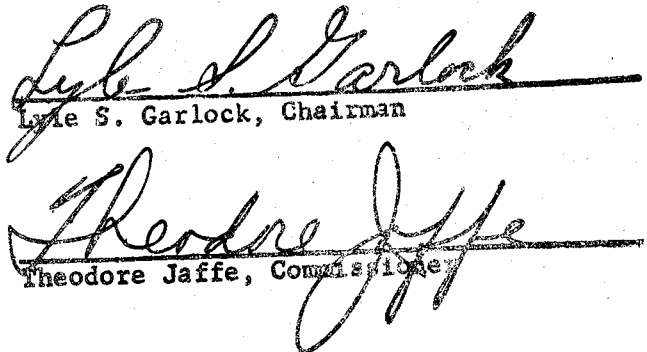 Lyle S. Garlock
Lyle S. Garlock, Chairman
Theodore Jaffe
Theodore Jaffe, Commissioner